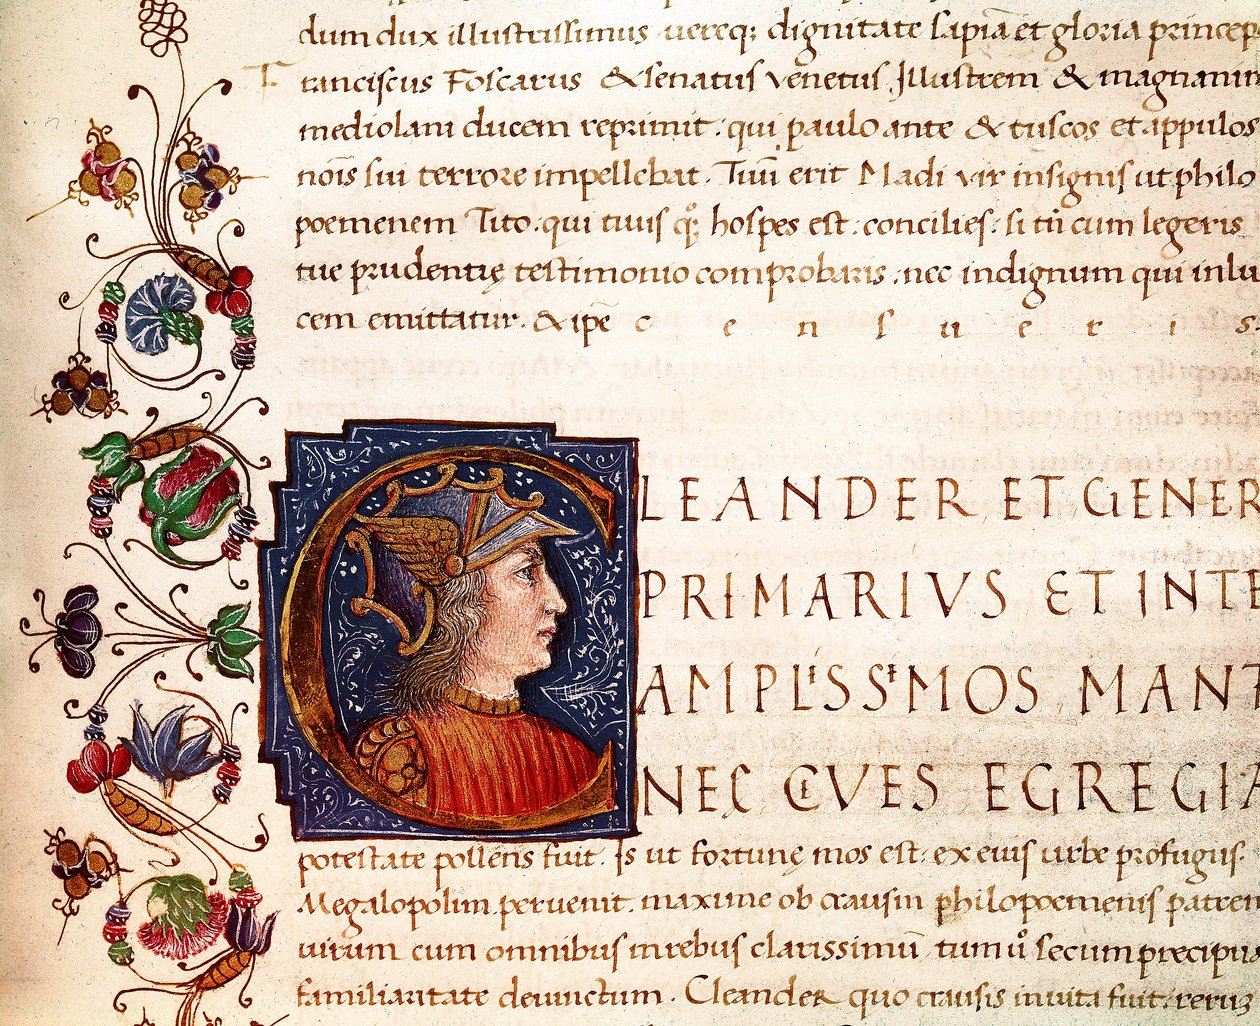 dum dux illustrissimus uereq; dignitate sapia et gloria princep
Franciscus Foscarus & senatus venetus. Illustrem & magnanim
mediolani ducem reprimit. qui paulo ante & tuscos et appulos
nois sui terrore impellebat. Tuu erit Madi vir insignis ut philo
poemenem Tito. qui tuus q; hospes est. concilies. si tn cum legeris
tue prudentię testimonio comprobaris. nec indignum qui in lu
cem emittatur. & ipe c e n s u e r i s
CLEANDER ET GENER
PRIMARIVS ET INTE
AMPLISSIMOS MANT
NEC CIVES EGREGIA
potestate pollens fuit. Is ut fortunę mos est. ex euis urbe profugus.
Megalopolim peruenit. maxime ob crausin philopoemenis patrem
uirum cum omnibus in rebus clarissimu tum u secum precipua
familiaritate deuinctum. Cleander quo crausis in uita fuit. rerum